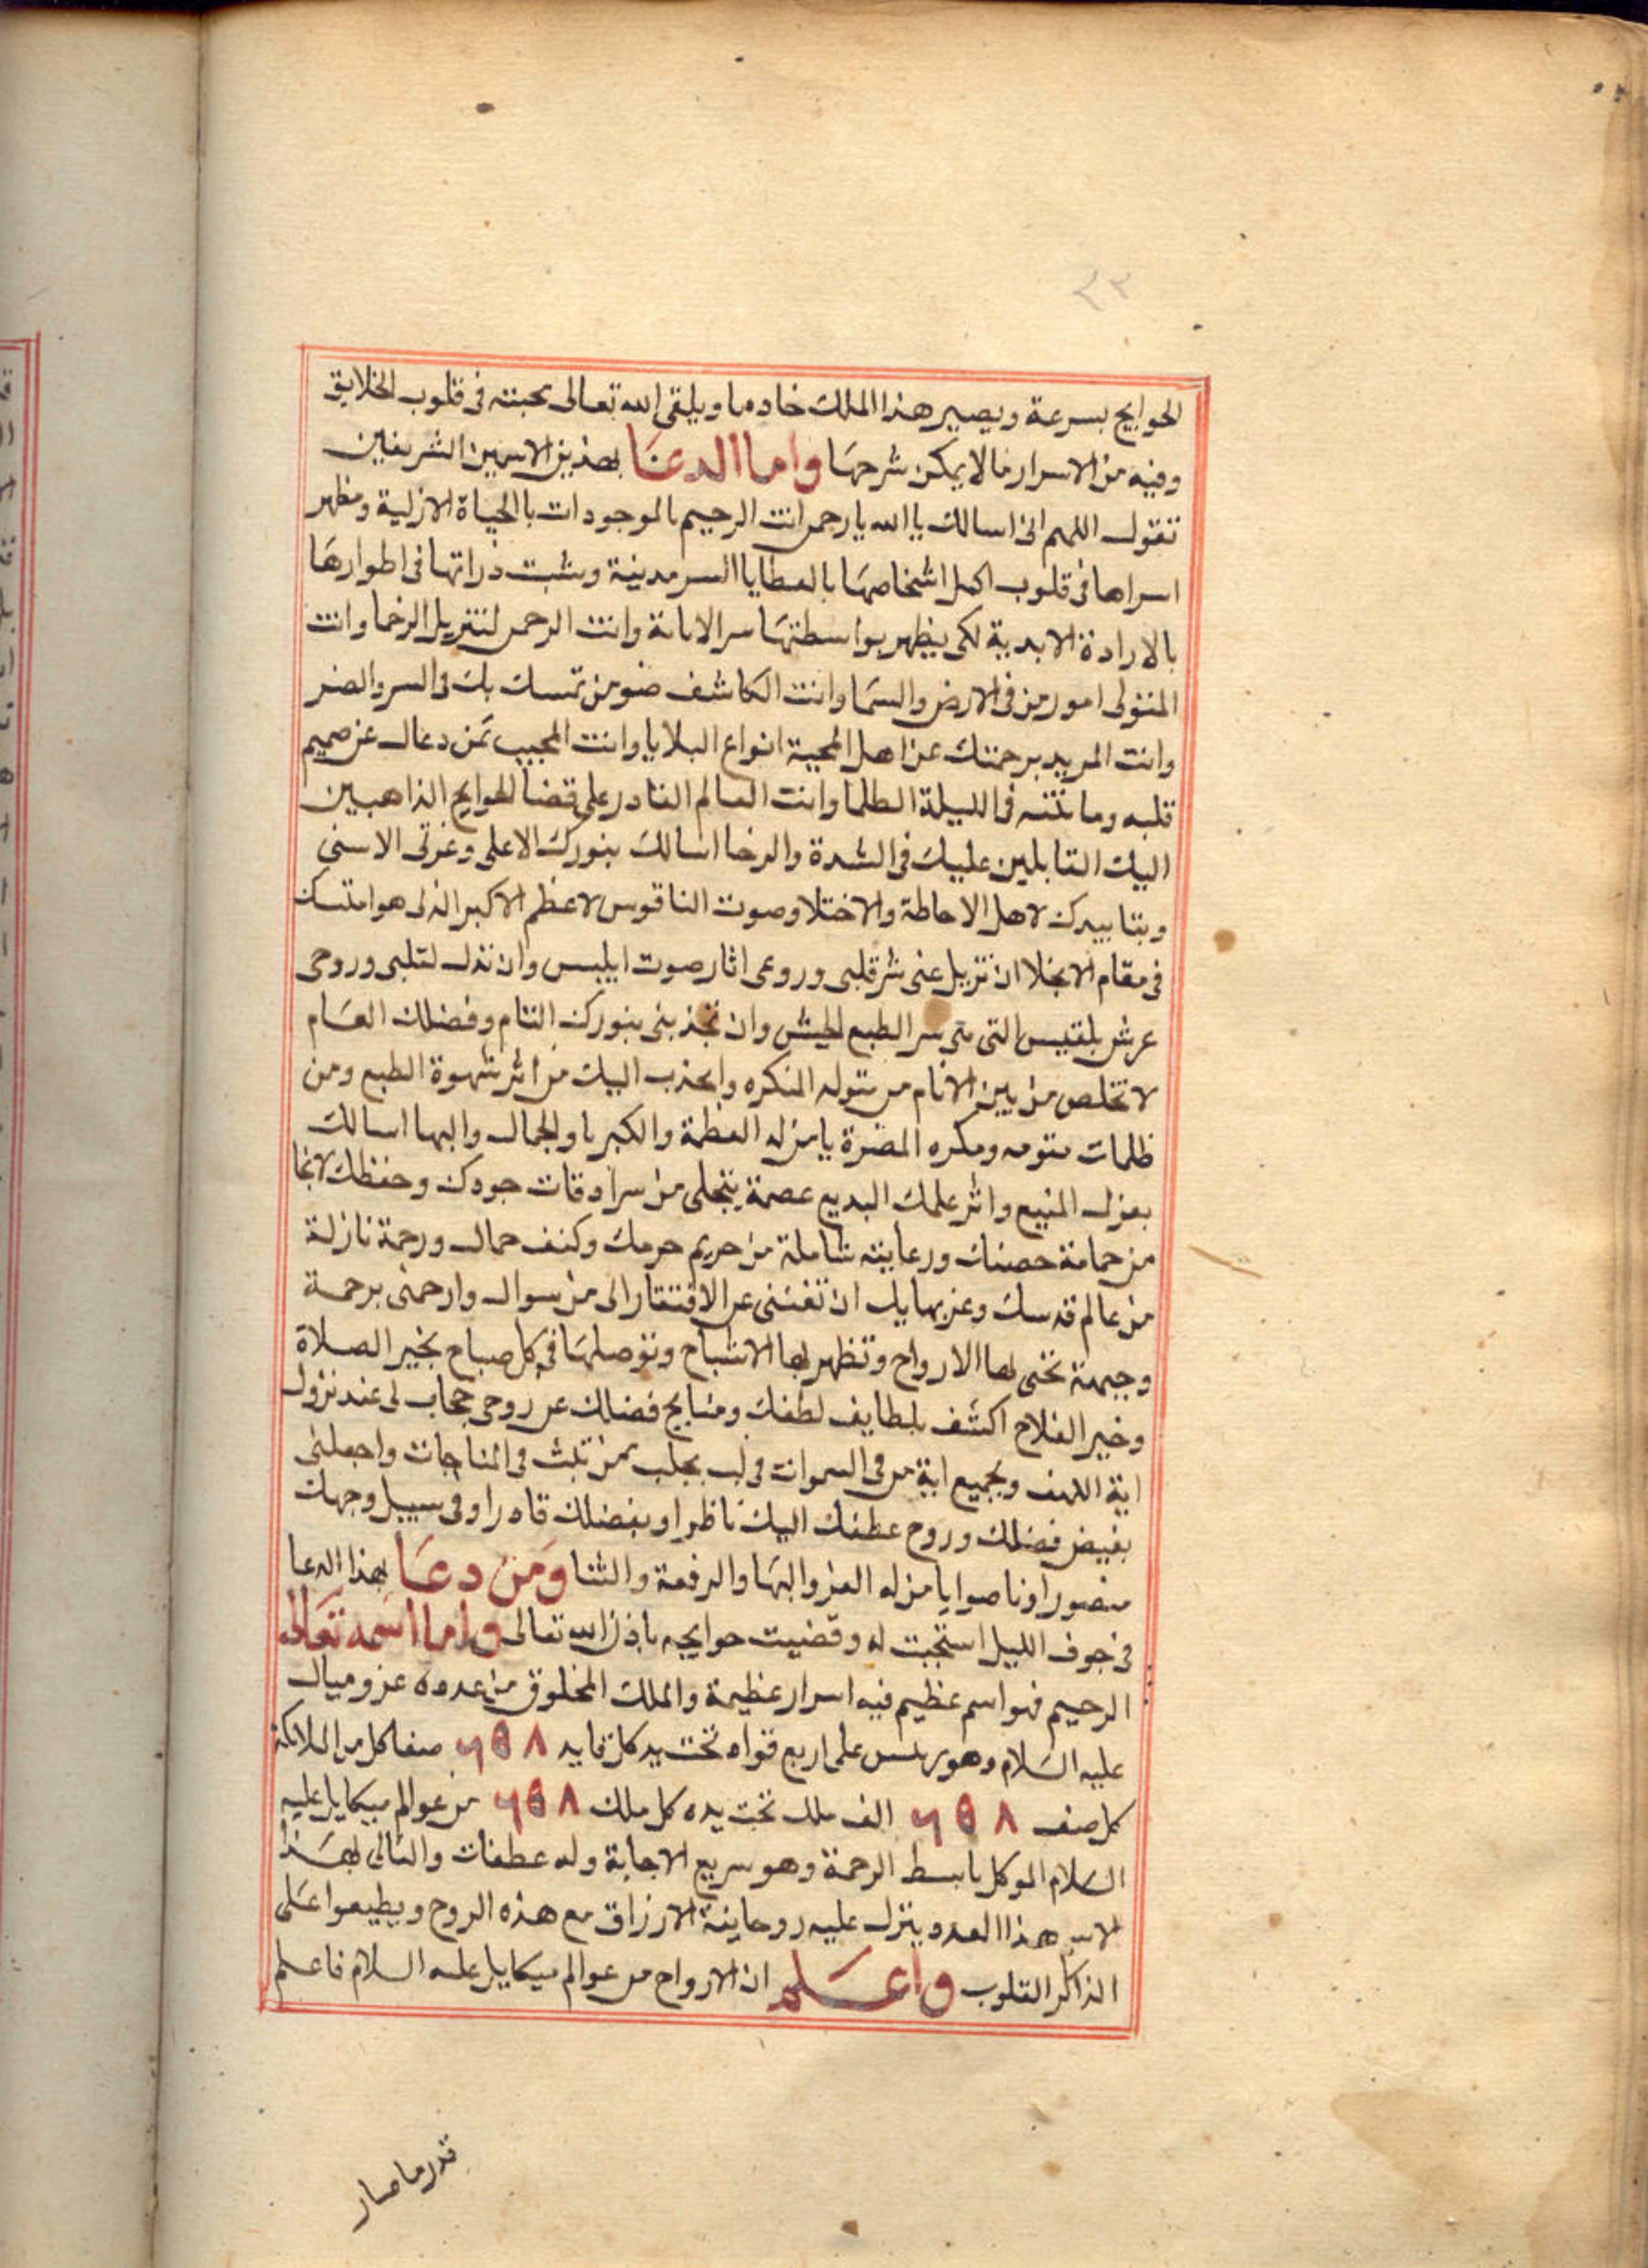 الحوايج بسرعة ويصير هذا الملك خادما ويلقى الله تعالى محبته فى قلوب الخلايق
وفيه من الاسرار ما لا يمكن شرحها واما الدعا بهذين الاسمين الشريفين
تقول اللهم انى اسالك يا الله يا رحمن انت الرحيم بالموجودات بالحياة الازلية ومظهر
اسراها فى قلوب اكمل اشخاصها بالعطايا السرمدينة ومثبت ذراتها فى اطوارها
بالارادة الابدية لكى يظهر بواسطتها سر الامانة وانت الرحمن لتنزيل الرخما وانت
المتولى امور من فى الارض والسما وانت الكاشف ضو من تمسك بك فى السر والضر
وانت المريد برحمتك عن اهل المحبة انواع البلايا وانت المجيب لمن دعاك عن صميم
قلبه وما تنه فى الليلة الظلما وانت العالم القادر على قضا الحوايج الذاهبين
اليك القابلين عليك فى الشدة والرخا اسالك بنورك الاعلى وعزتى الاسنى
وبتابيدك لاهل الاحاطة والاختلا وصوت الناقوس لاعظم الاكبر الذى هو امتسك
فى مقام الانجلا ان تزيل عنى شر قلبى وروعى اثار صوت ابليس وان تدك لقلبى وروحى
عرش بلقيس التى هى سر الطبع وان تجذبنى بنورك التام وفضلك العام
لا تخلص من بين الانام من المنكره وانجذب اليك من اثر شهوة الطبع ومن
ظلمات ومكره المضرة يا من له العظمة والكبريا والجمال والبها اسالك
بعزك المنيع واثر علمك البديع عصمة يتجلى من سرادقات جودك وحفظك لانجا
من حمامة حصنك ورعايته شاملة من حريم حرمك وكنف حماك ورحمة نازلة
من عالم قدسك وعز بهايك ان تغننى عن الافتقار الى من سواك وارحمنى برحمة
وجيهة تحى لها الارواح وتظهر لها الاشباح وتوصلها فى كل صباح بخير الصلاة
وخير الفلاح اكشف بلطايف لطفك ومنابح فضلك عن روحى حجاب لى عند نزول
اية اللهف وبجميع اية من فى السموات فى بمن تلبث فى المناجات واجعلنى
بفيض فضلك وروح عطفك اليك ناظرا وبفضلك قادرا وفى سبيل وجهك
منصورا وناصرا يا من له العز والبها والرفعة والثنا ومن دعا بهذا الدعا
فى جوف الليل استجبت له وقضيت حوايجه باذن الله تعالى واما اسمه تعالى
الرحيم فهو اسم عظيم فيه اسرار عظيمة والملك المخلوق من عدده عزوميال
عليه السلام وهو يريس على اربع قواه تحت يد كل قايد ٢٥٨ صفا كل من الملايكة
كل صف ٢٥٨ الف ملك تحت يده كل ملك ٢٥٨ من عوالم ميكايل عليه
السلام الموكل بابسط الرحمة وهو سريع الاجابة وله عطفات والتالى لهذا
الاسم هذا العدد ينزل عليه روحاينة الارزاق مع هذه الروح ويطيعوا على
الذاكر القلوب واعلم ان الارواح من عوالم ميكايل عليه السلام فاعلم
قدر ما صار